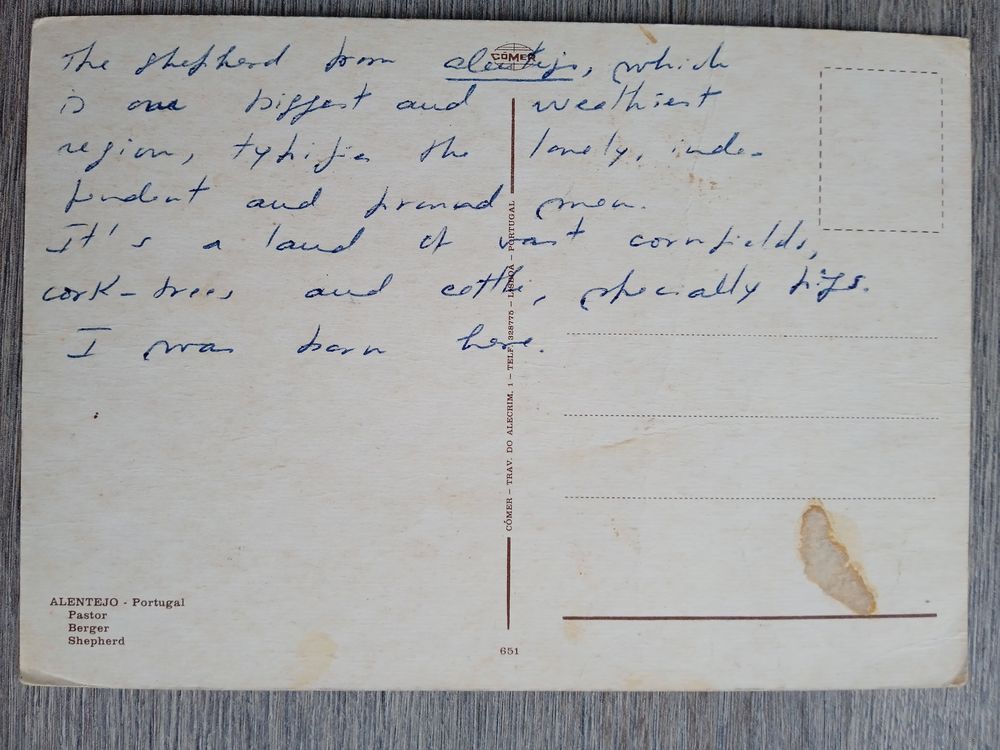 CÓMER
The shepherd from alentejo, which
is our biggest and wealthiest
region, typifies the lonely, inde-
pendent and pround men.
It's a land of vast cornfields,
cork-trees and cattle, specially pigs.
I was born here.
CÓMER - TRAV. DO ALECRIM, 1 - TELF. 328775 - LISBOA - PORTUGAL
ALENTEJO - Portugal
Pastor
Berger
Shepherd
651